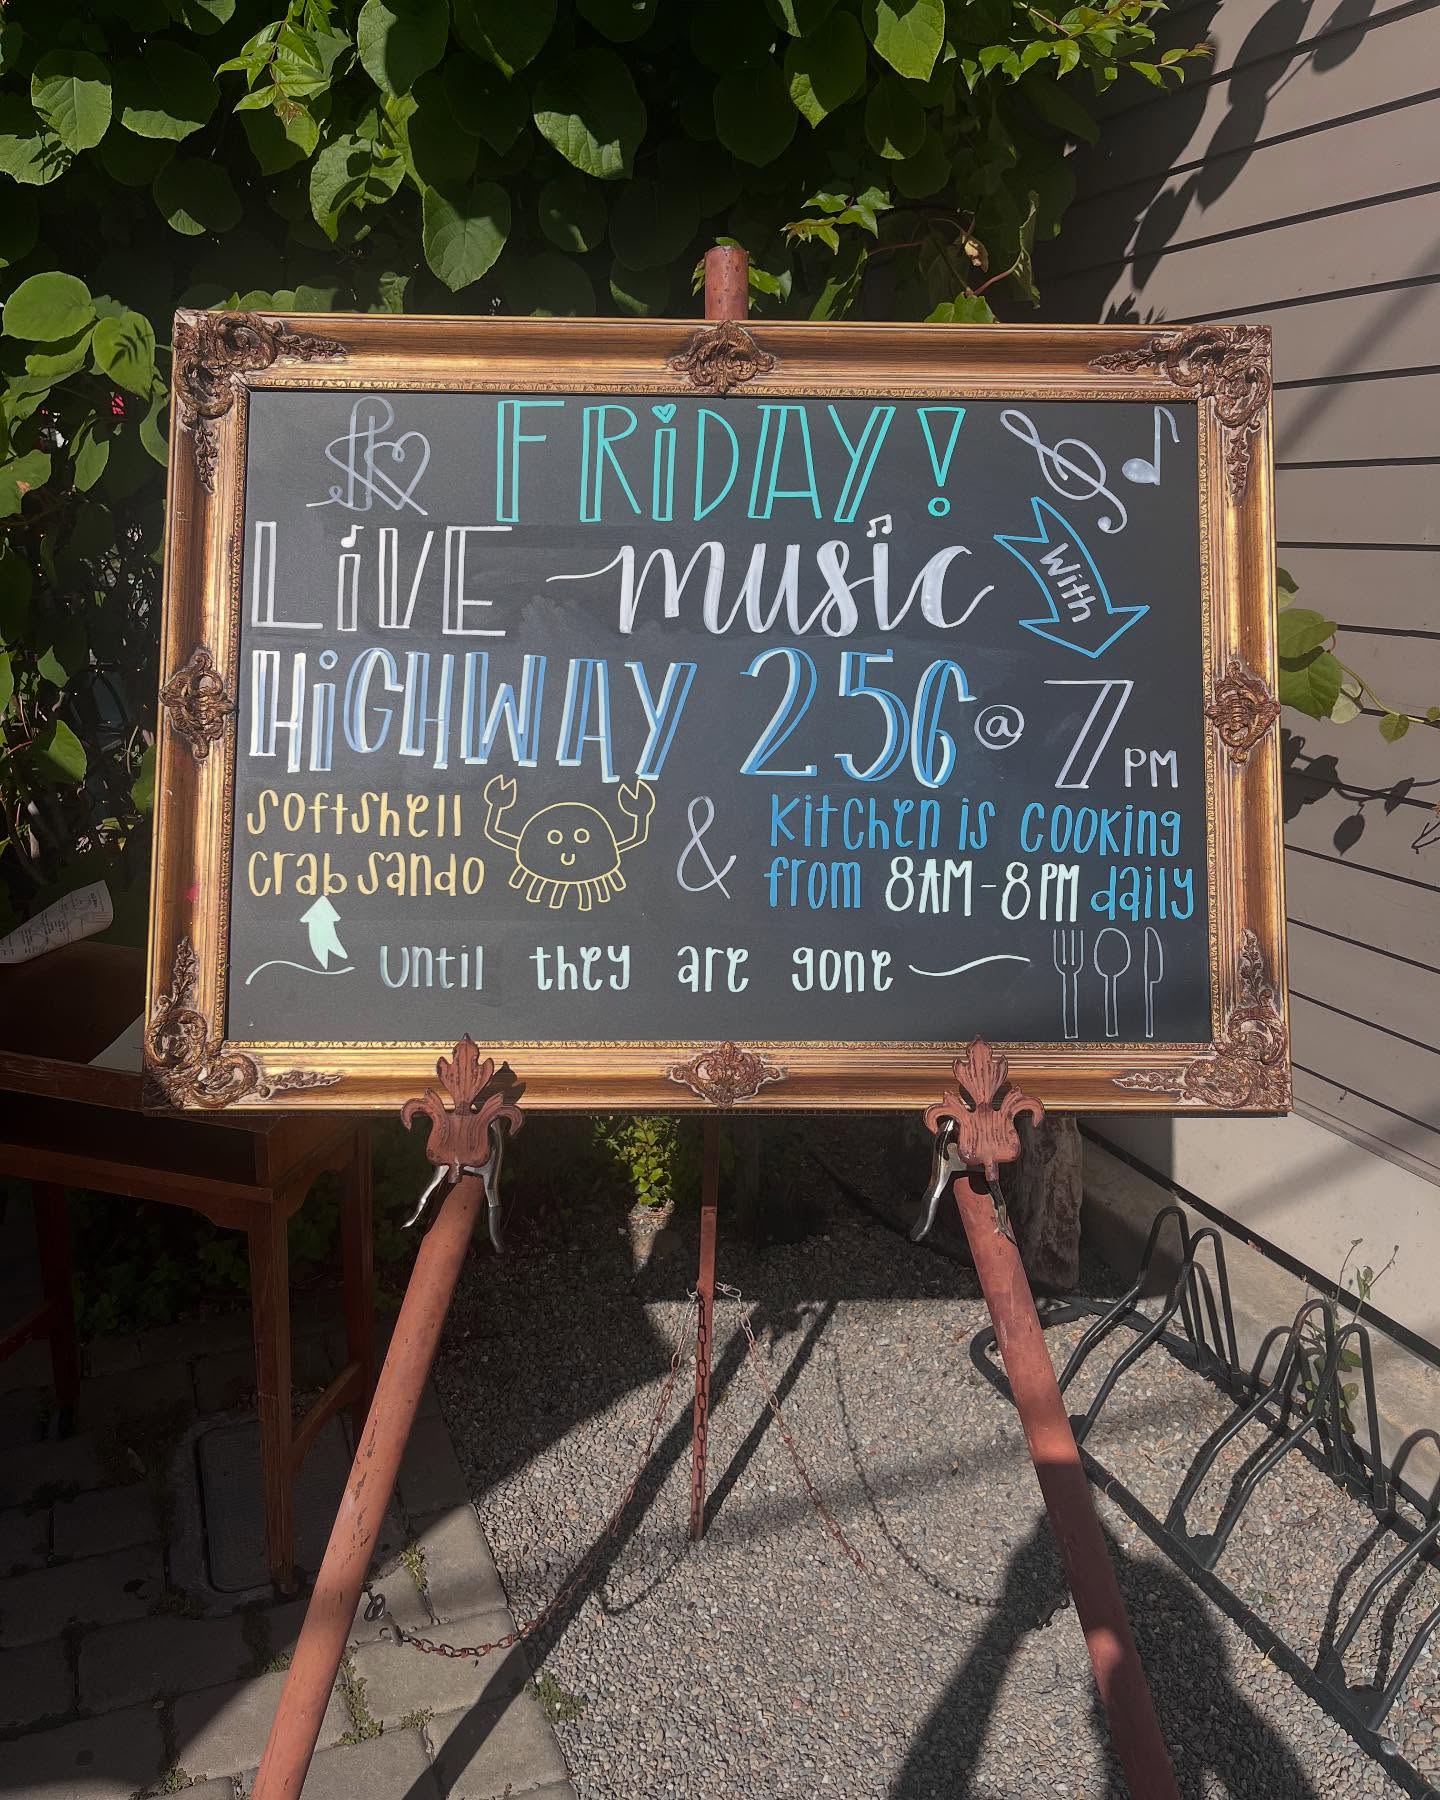 FRiDAY!
LiVE music With
HiGHWAY 256 @ 7PM
softshell
crab sando
& kitchen is cooking
from 8AM-8PM daily
until they are gone